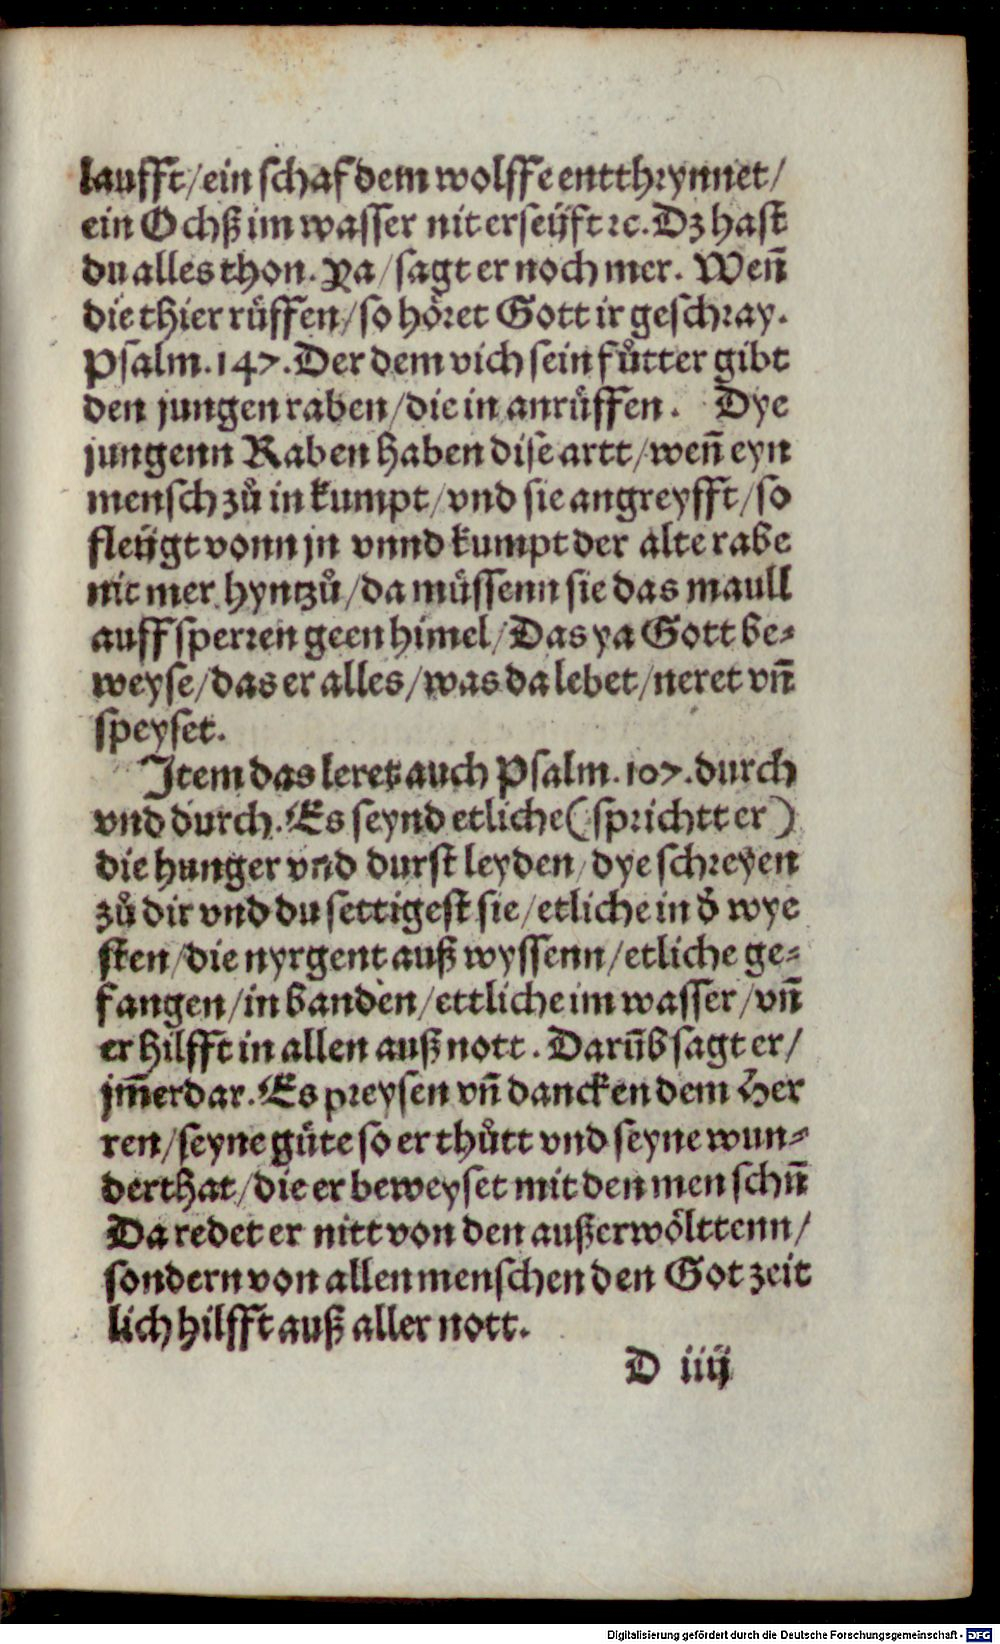 laufft/ein schaf dem wolffe entthrynnet/
ein Ochß im wasser nit erseüfft ꝛc. Dz hast
du alles thon. Ya/sagt er noch mer. Wen̄
die thier rüffen/so höret Gott ir geschray.
Psalm. 147. Der dem vich sein fůtter gibt
den jungen raben/die in anrüffen. Dye
jungenn Raben haben dise artt/wen̄ eyn
mensch zů in kumpt/vnd sie angreyfft/so
fleügt vonn jn vnnd kumpt der alte rabe
nit mer hyntzů/da müssenn sie das maull
auff sperren geen himel/Das ya Gott be⸗
weyse/das er alles/was da lebet/neret vn̄
speyset.
Item das leret auch Psalm. 107. durch
vnd durch. Es seynd etliche (sprichtt er)
die hunger vnd durst leyden/dye schreyen
zů dir vnd du settigest sie/etliche in d̓ wye
sten/die nyrgent auß wyssenn/etliche ge⸗
fangen/in banden/ettliche im wasser/vn̄
er hilfft in allen auß nott. Darūb sagt er/
jm̄erdar. Es preysen vn̄ dancken dem Her
ren/seyne güte so er thůtt vnd seyne wun⸗
derthat/die er beweyset mit den menschn̄
Da redet er nitt von den außerwölttenn/
sondern von allen menschen den Got zeit
lich hilfft auß aller nott.
D iiij
Digitalisierung gefördert durch die Deutsche Forschungsgemeinschaft - DFG